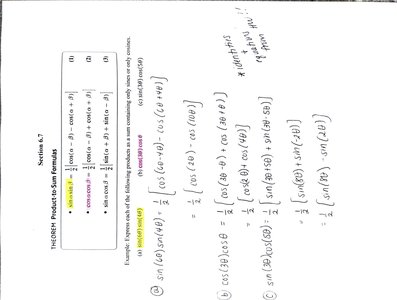 Section 6.7
THEOREM Product-to-Sum Formulas
• sin α sin β = 1/2[cos(α − β) − cos(α + β)] (1)
• cos α cos β = 1/2[cos(α − β) + cos(α + β)] (2)
• sin α cos β = 1/2[sin(α + β) + sin(α − β)] (3)
Example: Express each of the following products as a sum containing only sines or only cosines.
(a) sin(6θ) sin(4θ) (b) cos(3θ) cos θ (c) sin(3θ) cos(5θ)
ⓐ sin(6θ) sin(4θ) = 1/2 [cos(6θ-4θ) - cos(6θ+4θ)]
= 1/2 [cos(2θ) - cos(10θ)]
ⓑ cos(3θ)cosθ = 1/2 [cos(3θ-θ) + cos(3θ+θ)]
= 1/2 [cos(2θ) + cos(4θ)]
ⓒ sin(3θ)cos(5θ) = 1/2 [sin(3θ+5θ) + sin(3θ-5θ)]
= 1/2 [sin(8θ) + sin(-2θ)]
= 1/2 [sin(8θ) - sin(2θ)]
* identities